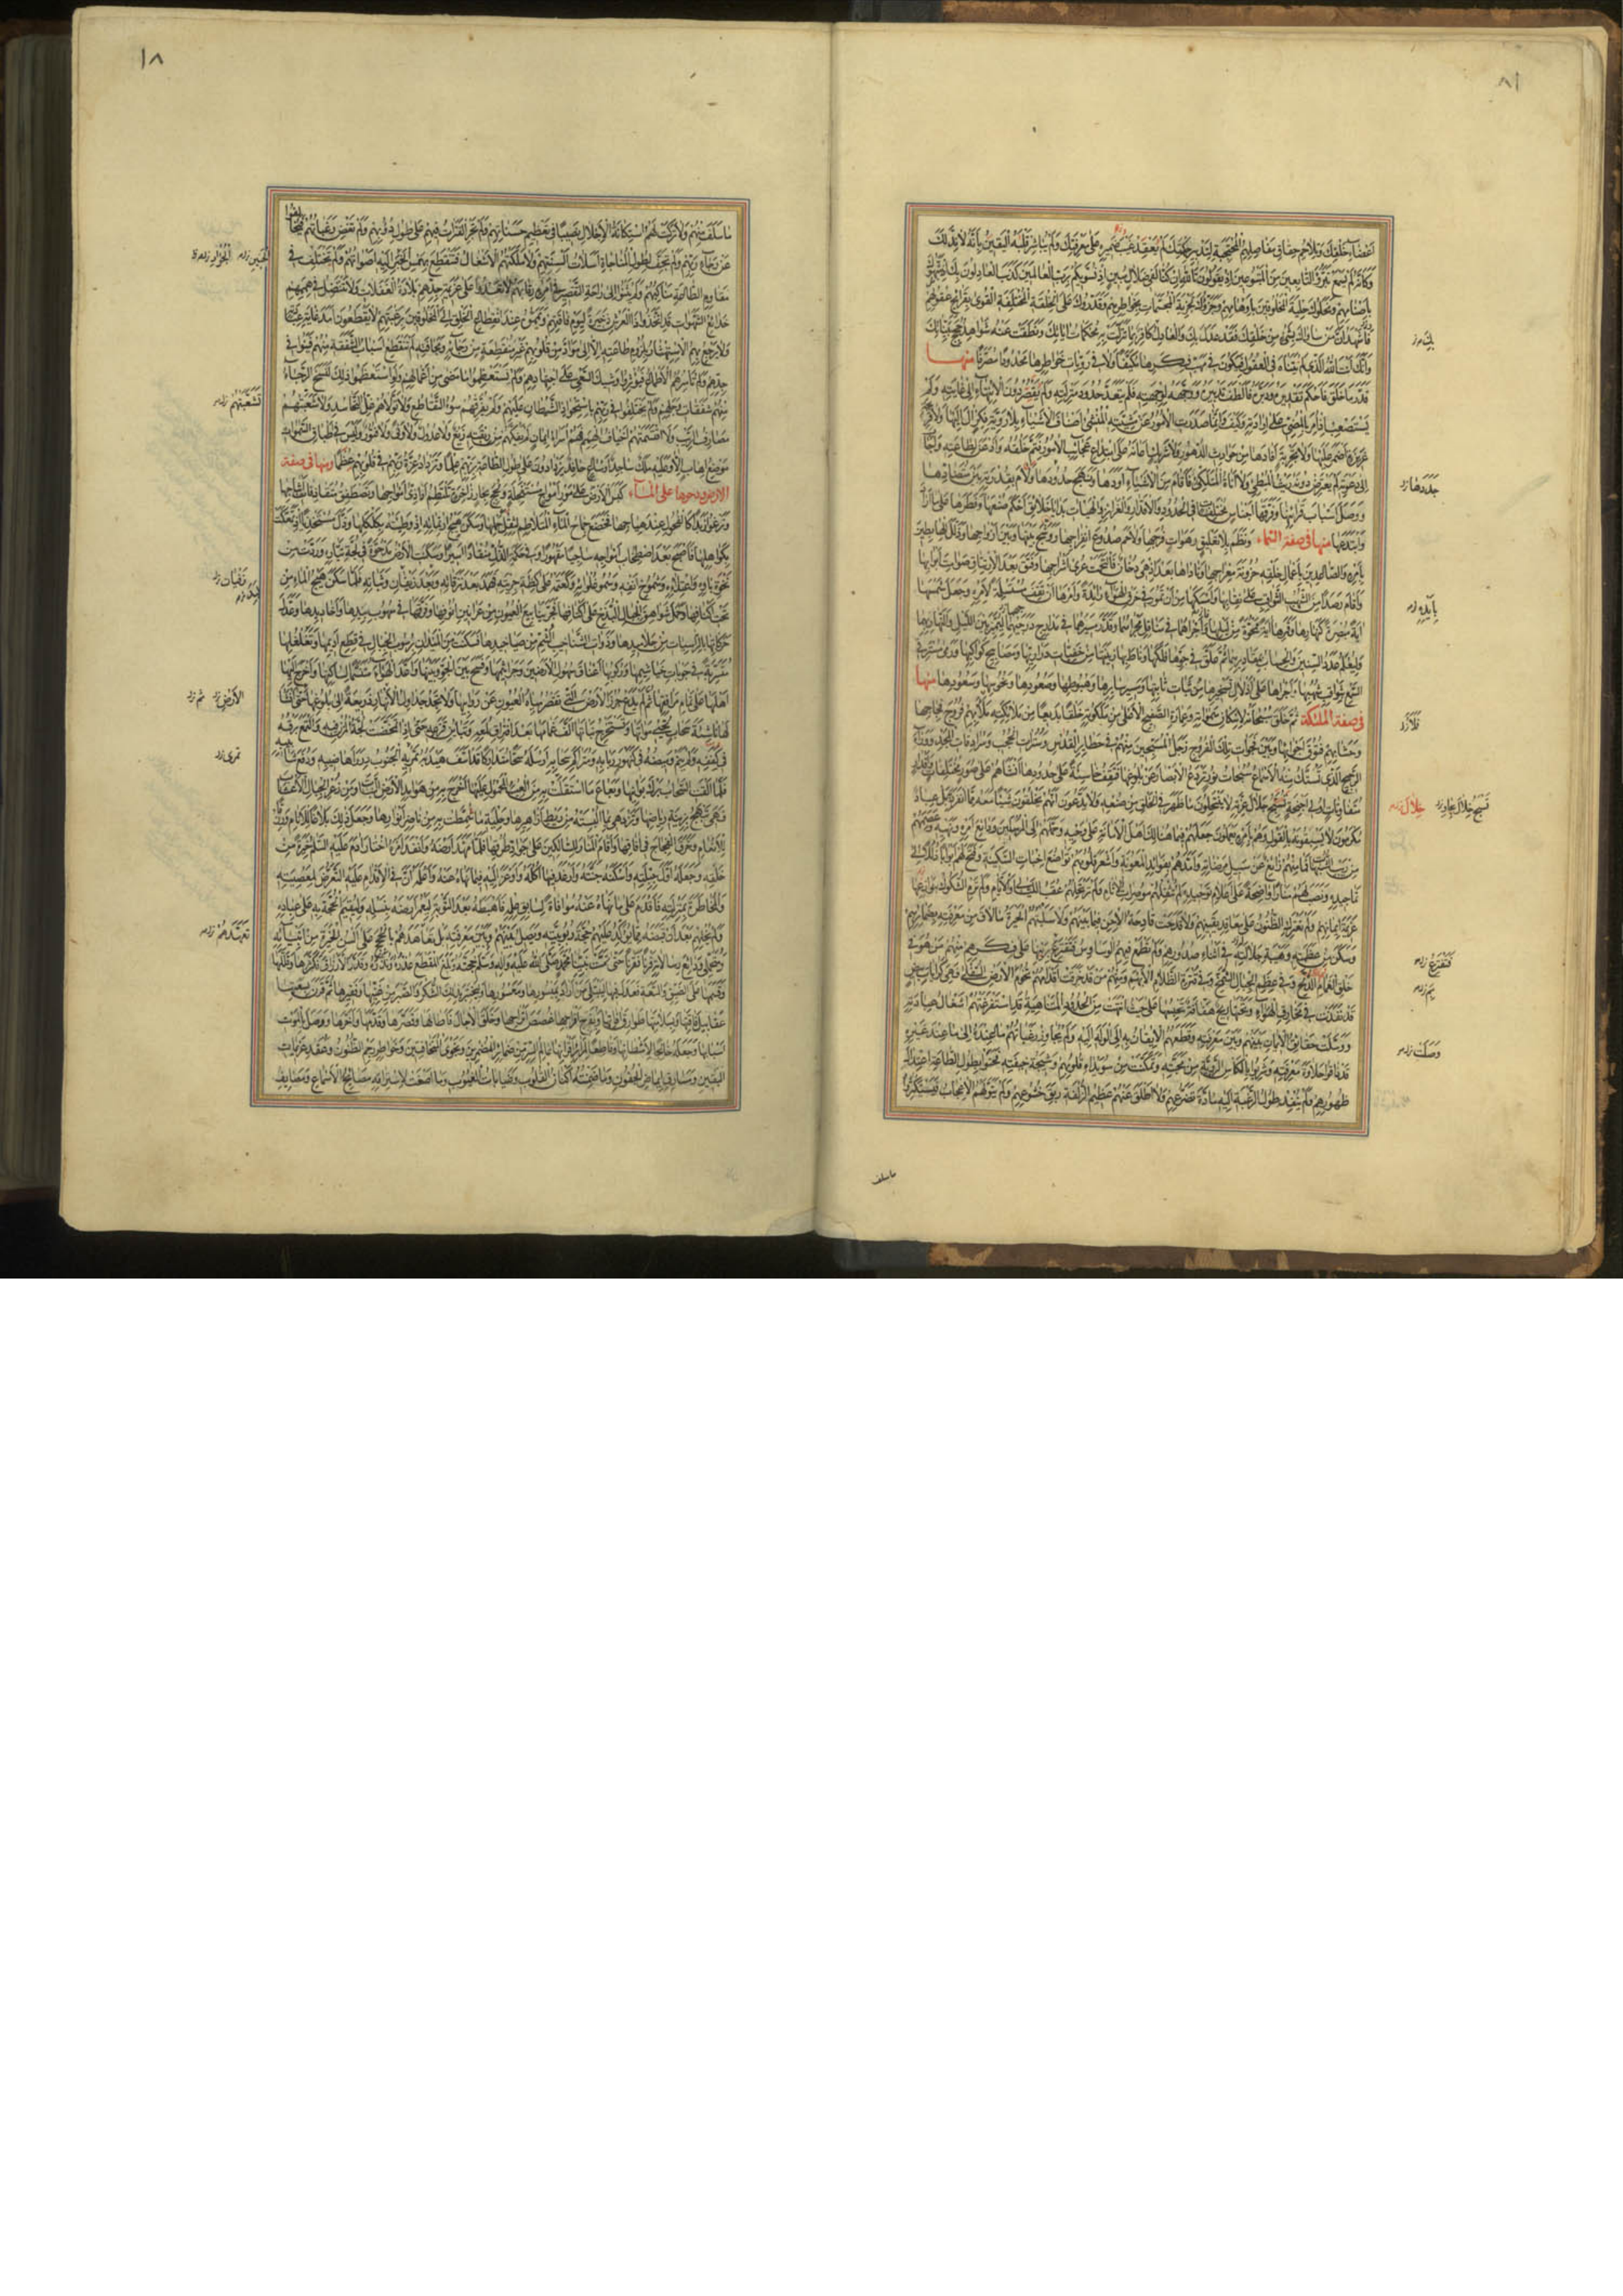 ٨١
أعضاء خلقك وتلاحم حقاق مفاصلهم المحتجبة لتدبير حكمتك لم يعقد غيب ضميره على معرفتك ولم يباشر قلبه اليقين بأنه لا ند لك
وكأنه لم يسمع تبرؤ التابعين من المتبوعين إذ يقولون تالله إن كنا لفي ضلال مبين إذ نسويكم برب العالمين كذب العادلون بك إذ شبهوك
بأصنامهم ونحلوك حلية المخلوقين بأوهامهم وجزؤك تجزية المجسمات بخواطرهم وقدروك على الخلقة المختلفة القوى بقرائح عقولهم
فأشهد أن من ساواك بشيء من خلقك فقد عدل بك والعادل بك كافر بما تنزلت به محكمات آياتك ونطقت عنه شواهد حجج بيناتك
وأنك أنت الله الذي لم تتناه في العقول فتكون في مهب فكرها مكيفا ولا في رويات خواطرها محدودا مصرفا منها
قدر ما خلق فأحكم تقديره ودبره فألطف تدبيره ووجهه لوجهته فلم يتعد حدود منزلته ولم يقصر دون الانتهاء إلى غايته ولم
يستصعب إذ أمر بالمضي على إرادته وكيف وإنما صدرت الأمور عن مشيته المنشئ أصناف الأشياء بلا روية فكر آل إليها ولا
غريزة أضمر عليها ولا تجربة أفادها من حوادث الدهور ولا شريك أعانه على ابتداع عجائب الأمور فتم خلقه وأذعن لطاعته وأجاب
إلى دعوته لم يعترض دونه ريث المبطئ ولا أناة المتلكئ فأقام من الأشياء أودها ونهج حدودها ولاءم بقدرته بين متضادها
ووصل أسباب قرائنها وفرقها أجناسا مختلفات في الحدود والأقدار والغرائز والهيئات بدايا خلائق أحكم صنعها وفطرها على ما أراد
وابتدعها منها في صفة السماء ونظم بلا تعليق رهوات فرجها ولاحم صدوع انفراجها ووشج بينها وبين أزواجها وذلل للهابطين
بأمره والصاعدين بأعمال خلقه حزونة معراجها وناداها بعد إذ هي دخان فالتحمت عرى أشراجها وفتق بعد الارتتاق صوامت أبوابها
وأقام رصدا من الشهب الثواقب على نقابها وأمسكها من أن تمور في خرق الهواء رائدة وأمرها أن تقف مستسلمة لأمره وجعل شمسها
آية مبصرة لنهارها وقمرها آية ممحوة من ليلها وأجراهما في مناقل مجراهما وقدر سيرهما في مدارج درجهما ليميز بين الليل والنهار بهما
وليعلم عدد السنين والحساب بمقاديرهما ثم علق في جوها فلكها وناط بها زينتها من خفيات دراريها ومصابيح كواكبها ورمى مسترقي
السمع بثواقب شهبها وأجراها على أذلال تسخيرها من ثبات ثابتها ومسير سائرها وهبوطها وصعودها ونحوسها وسعودها منها
في صفة الملئكة ثم خلق سبحانه لإسكان سمواته وعمارة الصفيح الأعلى من ملكوته خلقا بديعا من ملائكته ملأ بهم فروج فجاجها
وحشا بهم فتوق أجوائها وبين فجوات تلك الفروج زجل المسبحين منهم في حظائر القدس وسترات الحجب وسرادقات المجد ووراء ذلك
الرجيج الذي تستك منه الأسماع سبحات نور تردع الأبصار عن بلوغها فتقف خاسئة على حدودها أنشأهم على صور مختلفات وأقدار
متفاوتات أولي أجنحة تسبح جلال عزته لا ينتحلون ما ظهر في الخلق من صنعه ولا يدعون أنهم يخلقون شيئا معه مما انفرد به بل عباد
مكرمون لا يسبقونه بالقول وهم بأمره يعملون جعلهم فيما هنالك أهل الأمانة على وحيه وحملهم إلى المرسلين ودائع أمره ونهيه وعصمهم
من ريب الشبهات فما منهم زائغ عن سبيل مرضاته وأمدهم بفوائد المعونة وأشعر قلوبهم تواضع إخبات السكينة وفتح لهم أبوابا ذللا إلى
تماجيده ونصب لهم منارا واضحة على أعلام توحيده لم تثقلهم موصرات الآثام ولم ترتحلهم عقب الليالي والأيام ولم ترم الشكوك بنوازعها
عزيمة إيمانهم ولم تعترك الظنون على معاقد يقينهم ولا قدحت قادحة الإحن فيما بينهم ولا سلبتهم الحيرة ما لاق من معرفته بضمائرهم
وسكن من عظمته وهيبة جلالته في أثناء صدورهم ولم تطمع فيهم الوساوس فتقترع برينها على فكرهم منهم من هو في
خلق الغمام الدلح وفي عظم الجبال الشمخ وفي قترة الظلام الأيهم ومنهم من قد خرقت أقدامهم تخوم الأرض السفلى فهي كرايات بيض
قد نفذت في مخارق الهواء وتحتها ريح هفافة تحبسها على حيث انتهت من الحدود المتناهية قد استفرغتهم أشغال عبادته
ووسلت حقائق الإيمان بينهم وبين معرفته وقطعهم الإيقان به إلى الوله إليه ولم تجاوز رغباتهم ما عنده إلى ما عند غيره
قد ذاقوا حلاوة معرفته وشربوا بالكأس الروية من محبته وتمكنت من سويداء قلوبهم وشيجة خيفته فحنوا بطول الطاعة اعتدال
ظهورهم ولم ينفد طول الرغبة إليه مادة تضرعهم ولا أطلق عنهم عظيم الزلفة ربق خشوعهم ولم يتولهم الإعجاب فيستكثروا
ما سلف
جددها
فلأرد
خلال
فتقترع
وصلت
١٨
ما سلف منهم ولا تركت لهم استكانة الإجلال نصيبا في تعظيم حسناتهم ولم تجر الفترات فيهم على طول دؤوبهم ولم تغض رغباتهم فيخالفوا
عن رجاء ربهم ولم تجف لطول المناجاة أسلات ألسنتهم ولا ملكتهم الأشغال فتنقطع بهمس الخير إليه أصواتهم ولم تختلف في
مقاوم الطاعة مناكبهم ولم يثنوا إلى راحة التقصير في أمره رقابهم لا تعدو على عزيمة جدهم بلادة الغفلات ولا تنتضل في هممهم
خدائع الشهوات قد اتخذوا ذا العرش ذخيرة ليوم فاقتهم ويمموه عند انقطاع الخلق إلى المخلوقين برغبتهم لا يقطعون أمد غاية عبادته
ولا يرجع بهم الاستهتار بلزوم طاعته إلا إلى مواد من قلوبهم غير منقطعة من رجائه ومخافته لم تنقطع أسباب الشفقة منهم فينوا في
جدهم ولم تأسرهم الأطماع فيؤثروا وشيك السعي على اجتهادهم ولم يستعظموا ما مضى من أعمالهم ولو استعظموا ذلك لنسخ الرجاء
منهم شفقات وجلهم ولم يختلفوا في ربهم باستحواذ الشيطان عليهم ولم يفرقهم سوء التقاطع ولا تولاهم غل التحاسد ولا شعبتهم
مصارف الريب ولا اقتسمتهم أخياف الهمم فهم أسراء إيمان لم يفكهم من ربقته زيغ ولا عدول ولا ونى ولا فتور وليس في أطباق السموات
موضع إهاب إلا وعليه ملك ساجد أو ساع حافد يزدادون على طول الطاعة بربهم علما وتزداد عزة ربهم في قلوبهم عظما ومنها في صفة
الأرض ودحوها على الماء كبس الأرض على مور أمواج مستفحلة ولجج بحار زاخرة تلتطم أواذي أمواجها وتصطفق متقاذفات أثباجها
وترغو زبدا كالفحول عند هياجها فخضع جماح الماء المتلاطم لثقل حملها وسكن هيج ارتمائه إذ وطئته بكلكلها وذل مستخذيا إذ تمعكت
بكواهلها فأصبح بعد اصطخاب أمواجه ساجيا مقهورا وفي حكمة الذل منقادا أسيرا وسكنت الأرض مدحوة في لجة تياره وردت من
نخوة بأوه واعتلائه وشموخ أنفه وسمو غلوائه وكعمته على كظة جريته فهمد بعد نزقاته وبعد زيفان وثباته فلما سكن هيج الماء من
تحت أكنافها وحمل شواهق الجبال البذخ على أكتافها فجر ينابيع العيون من عرانين أنوفها وفرقها في سهوب بيدها وأخاديدها وعدل
حركاتها بالراسيات من جلاميدها وذوات الشناخيب الشم من صياخيدها فسكنت من الميدان برسوب الجبال في قطع أديمها وتغلغلها
متسربة في جوبات خياشيمها وركوبها أعناق سهول الأرضين وجراثيمها وفسح بين الجو وبينها وأعد الهواء متنسما لساكنها وأخرج إليها
أهلها على تمام مرافقها ثم لم يدع جرز الأرض التي تقصر مياه العيون عن روابيها ولا تجد جداول الأنهار ذريعة إلى بلوغها حتى أنشأ
لها ناشئة سحاب تحيي مواتها وتستخرج نباتها ألف غمامها بعد افتراق لمعه وتباين قزعه حتى إذا تمخضت لجة المزن فيه والتمع برقه
في كففه ولم ينم وميضه في كنهور ربابه ومتراكم سحابه أرسله سحا متداركا قد أسف هيدبه تمريه الجنوب درر أهاضيبه ودفع شآبيبه
فلما ألقت السحاب برك بوانيها وبعاع ما استقلت به من العبء المحمول عليها أخرج به من هوامد الأرض النبات ومن زعر الجبال الأعشاب
فهي تبهج بزينة رياضها وتزدهي بما ألبسته من ريط أزاهيرها وحلية ما سمطت به من ناضر أنوارها وجعل ذلك بلاغا للأنام ورزقا
للأنعام وخرق الفجاج في آفاقها وأقام المنار للسالكين على جواد طرقها فلما مهد أرضه وأنفذ أمره اختار آدم عليه السلام خيرة من
خلقه وجعله أول جبلته وأسكنه جنته وأرغد فيها أكله وأوعز إليه فيما نهاه عنه وأعلمه أن في الإقدام عليه التعرض لمعصيته
والمخاطرة بمنزلته فأقدم على ما نهاه عنه موافاة لسابق علمه فأهبطه بعد التوبة ليعمر أرضه بنسله وليقيم الحجة به على عباده
ولم يخلهم بعد أن قبضه مما يؤكد عليهم حجة ربوبيته ويصل بينهم وبين معرفته بل تعاهدهم بالحجج على ألسن الخيرة من أنبيائه
ومتحملي ودائع رسالاته قرنا فقرنا حتى تمت بنبينا محمد صلى الله عليه وآله وسلم حجته وبلغ المقطع عذره ونذره وقدر الأرزاق فكثرها وقللها
وقسمها على الضيق والسعة فعدل فيها ليبتلي من أراد بميسورها ومعسورها وليختبر بذلك الشكر والصبر من غنيها وفقيرها ثم قرن بسعتها
عقابيل فاقتها وبسلامتها طوارق آفاتها وبفرج أفراجها غصص أتراحها وخلق الآجال فأطالها وقصرها وقدمها وأخرها ووصل بالموت
أسبابها وجعله خالجا لأشطانها وقاطعا لمرائر أقرانها عالم السر من ضمائر المضمرين ونجوى المتخافتين وخواطر رجم الظنون وعقد عزيمات
اليقين ومسارق إيماض الجفون وما ضمنته أكنان القلوب وغيابات الغيوب وما أصغت لاستراقه مصائخ الأسماع ومصايف
تشعبتهم
زيفان
الأرض
تمرى
تعهدهم